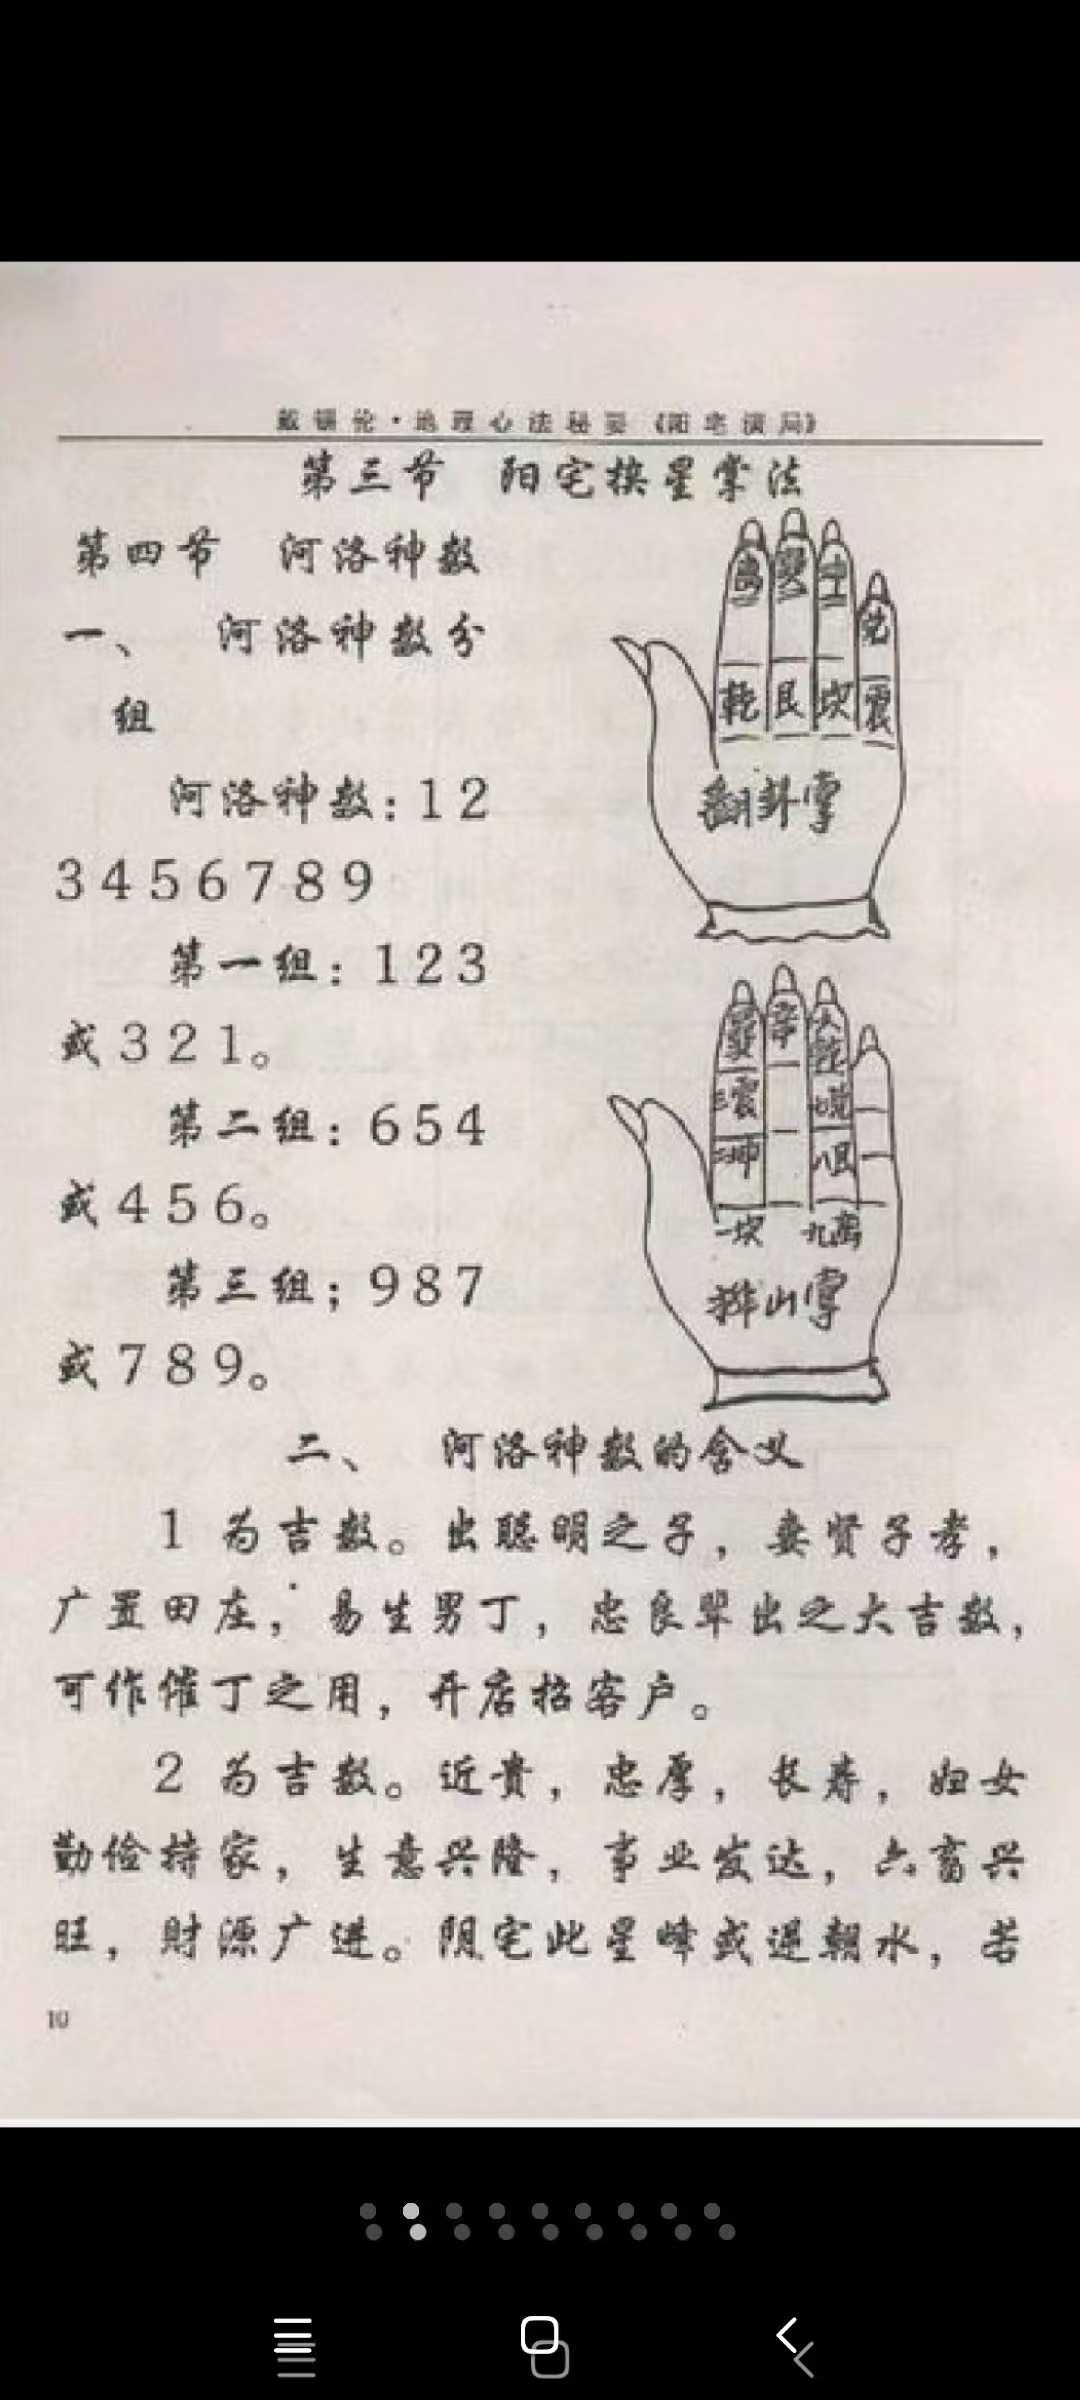 戴锡伦·地理心法秘要《阳宅演局》
第三节 阳宅挨星掌法
第四节 河洛神数
一、 河洛神数分
组
河洛神数:12
3456789
第一组:123
或321。
第二组:654
或456。
第三组;987
或789。
离 巽 中 兑
乾 艮 坎 震
翻卦掌
巽 六乾
三震 七兑
二坤 八艮
一坎 九离
排山掌
二、 河洛神数的含义
1 为吉数。出聪明之子,妻贤子孝,
广置田庄,易生男丁,忠良辈出之大吉数,
可作催丁之用,开店招客户。
2 为吉数。近贵,忠厚,长寿,妇女
勤俭持家,生意兴隆,事业发达,六畜兴
旺,财源广进。阴宅此星峰或逆朝水,若
10